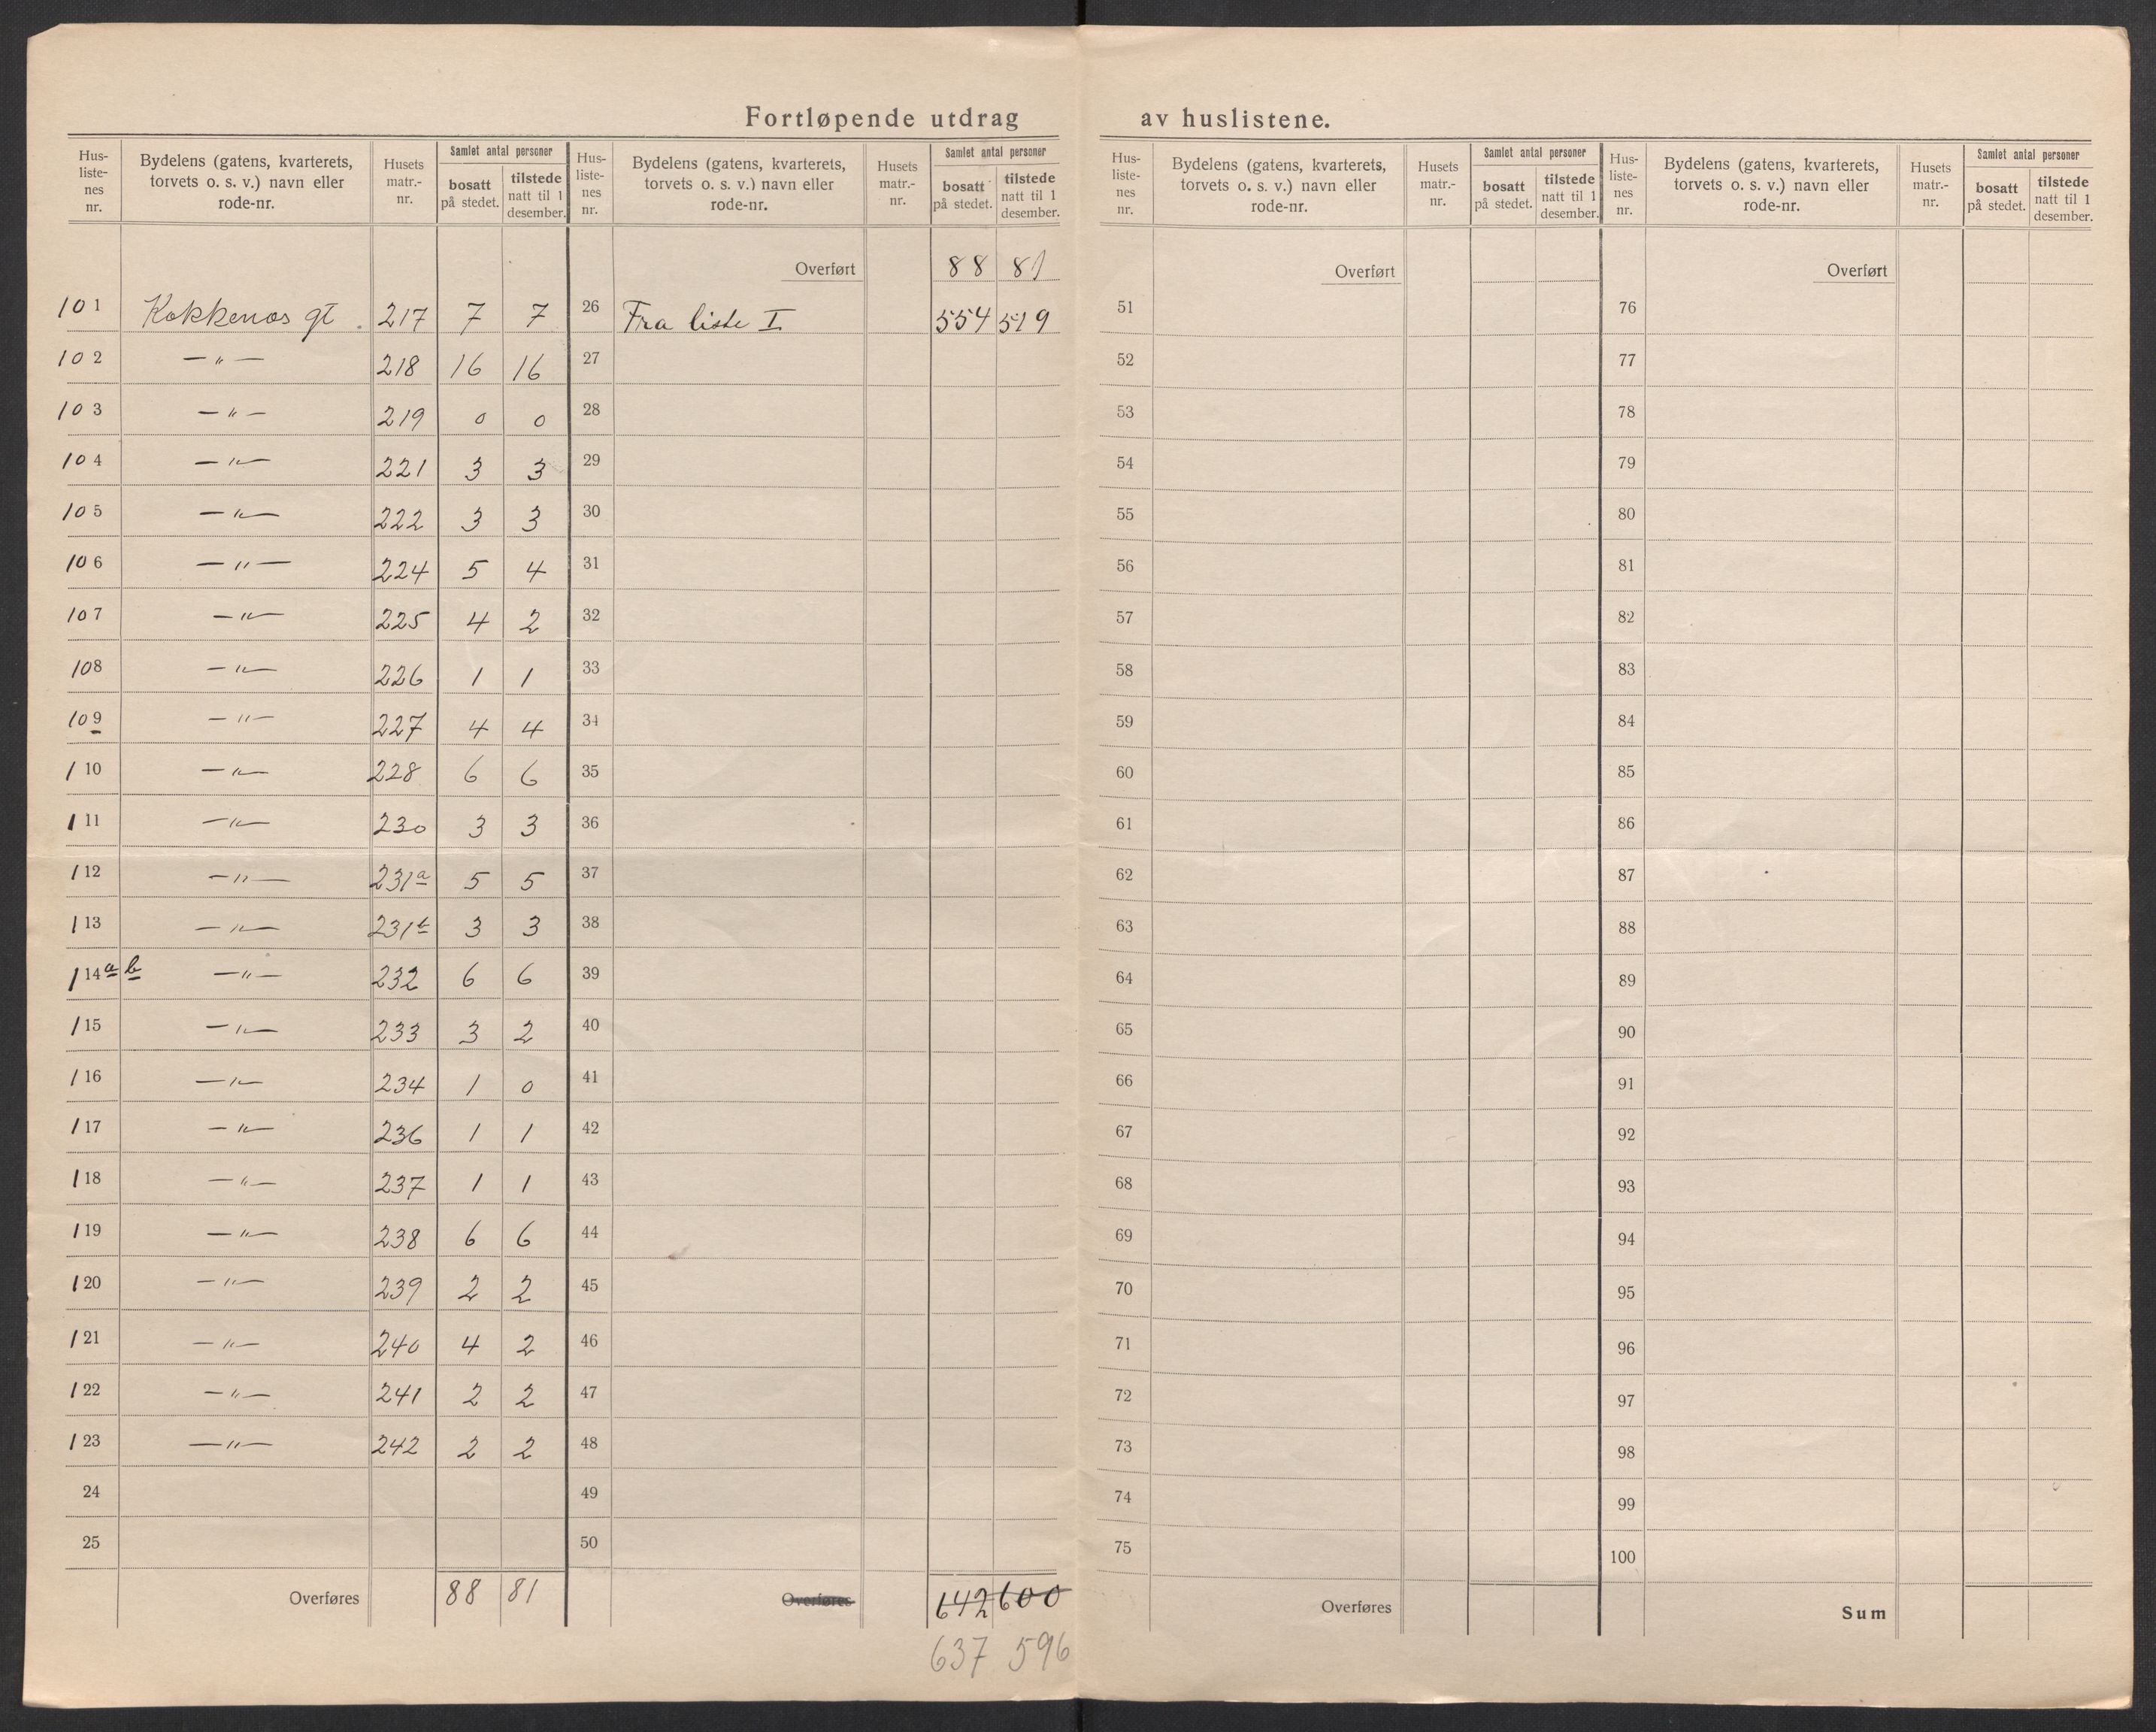 Fortløpende utdrag av huslistene.
Hus-liste-nes nr. | Bydelens (gatens, kvarterets, torvets o. s. v.) navn eller rode-nr. | Husets matr.-nr. | Samlet antal personer | bosatt på stedet. | tilstede natt til 1 desember.
101 Kokkenes gt. 217 7 7
102 — " — 218 16 16
103 — " — 219 0 0
104 — " — 221 3 3
105 — " — 222 3 3
106 — " — 224 5 4
107 — " — 225 4 2
108 — " — 226 1 1
109 — " — 227 4 4
110 — " — 228 6 6
111 — " — 230 3 3
112 — " — 231a 5 5
113 — " — 231b 3 3
114a b — " — 232 6 6
115 — " — 233 3 2
116 — " — 234 1 0
117 — " — 236 1 1
118 — " — 237 1 1
119 — " — 238 6 6
120 — " — 239 2 2
121 — " — 240 4 2
122 — " — 241 2 2
123 — " — 242 2 2
24
25
Overføres 88 81
Hus-liste-nes nr. | Bydelens (gatens, kvarterets, torvets o. s. v.) navn eller rode-nr. | Husets matr.-nr. | Samlet antal personer | bosatt på stedet. | tilstede natt til 1 desember.
Overført 88 81
26 Fra liste I 554 519
27
28
29
30
31
32
33
34
35
36
37
38
39
40
41
42
43
44
45
46
47
48
49
50
Overføres 642 600
637 596
Hus-liste-nes nr. | Bydelens (gatens, kvarterets, torvets o. s. v.) navn eller rode-nr. | Husets matr.-nr. | Samlet antal personer | bosatt på stedet. | tilstede natt til 1 desember.
Overført
51
52
53
54
55
56
57
58
59
60
61
62
63
64
65
66
67
68
69
70
71
72
73
74
75
Overføres
Hus-liste-nes nr. | Bydelens (gatens, kvarterets, torvets o. s. v.) navn eller rode-nr. | Husets matr.-nr. | Samlet antal personer | bosatt på stedet. | tilstede natt til 1 desember.
Overført
76
77
78
79
80
81
82
83
84
85
86
87
88
89
90
91
92
93
94
95
96
97
98
99
100
Sum